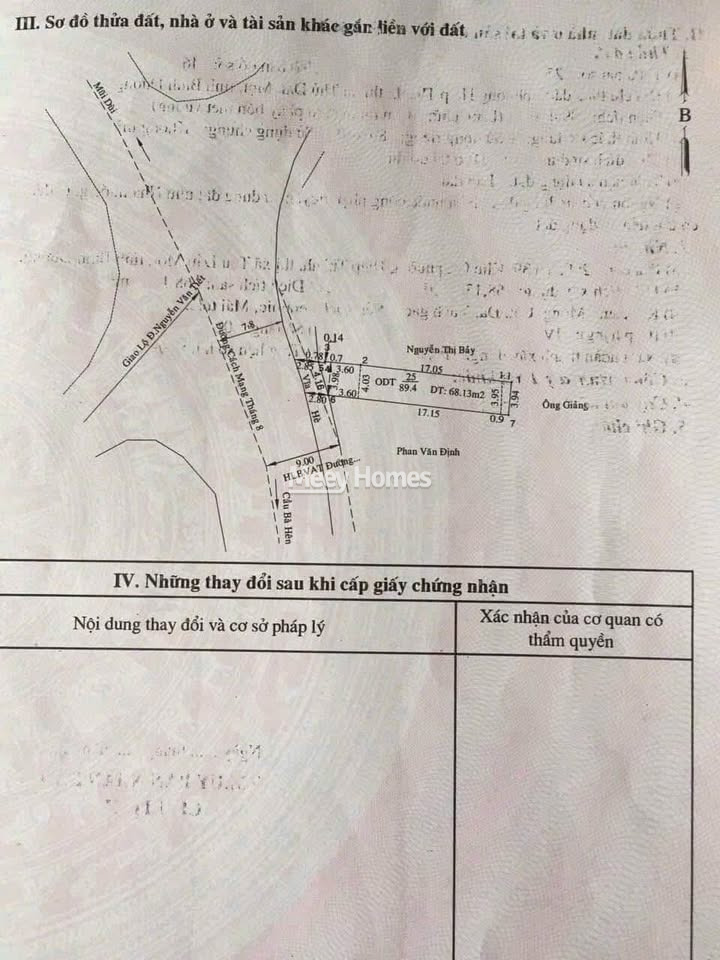 III. Sơ đồ thửa đất, nhà ở và tài sản khác gắn liền với đất
B
Mũi Dùi
Giao Lộ Đ.Nguyễn Văn Tiết
7.8
Đường Cách Mạng Tháng 8
0.14
3
1
0.78
0.7
2
Nguyễn Thị Bảy
2.85
3.60
17.05
4.16
3.98
4.03
ODT
25
89.4
DT: 68.13m2
3.95
3.94
Ông Giảng
Vỉa Hè
2.80
3.60
6
17.15
0.9
7
Phan Văn Định
9.00
HLBVAT Đường...
Meey Homes
Cầu Bà Hên
IV. Những thay đổi sau khi cấp giấy chứng nhận
Nội dung thay đổi và cơ sở pháp lý
Xác nhận của cơ quan có
thẩm quyền